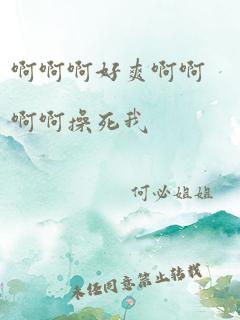 啊啊啊好爽啊啊
啊啊操死我
何必姐姐
未经同意禁止转载